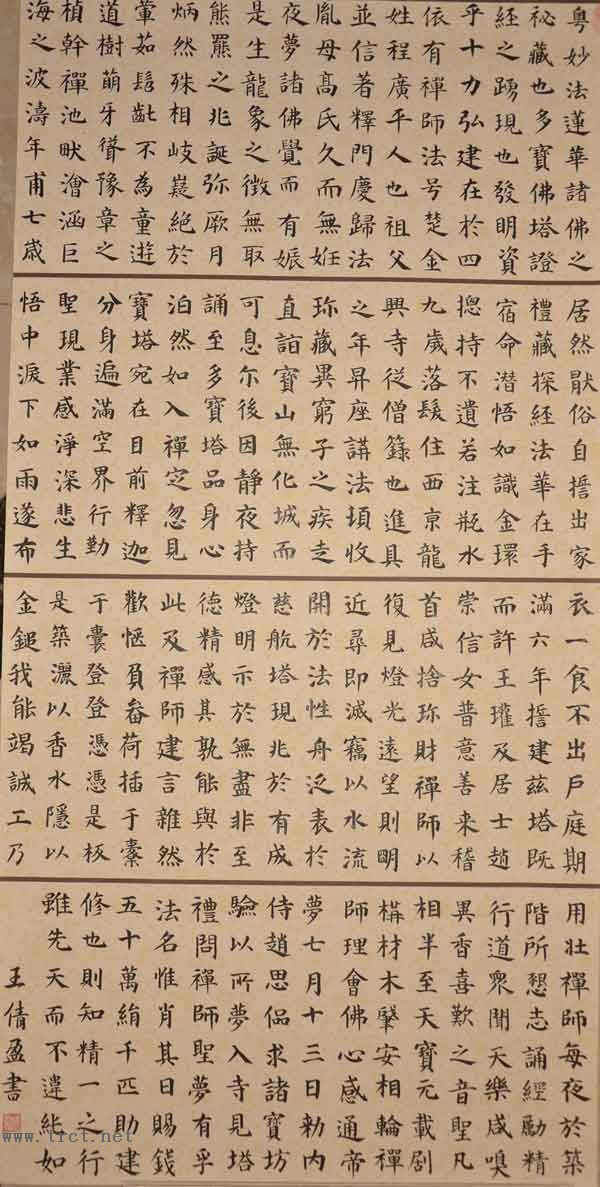 粤妙法蓮華諸佛之
祕藏也多寶佛塔證
經之踴現也發明資
乎十力弘建在於四
依有禪師法号楚金
姓程廣平人也祖父
並信著釋門慶歸法
胤母高氏久而無妊
夜夢諸佛覺而有娠
是生龍象之徵無取
熊羆之兆誕弥厥月
炳然殊相岐嶷絕於
葷茹髫齔不為童遊
道樹萌牙聳豫章之
楨幹禪池畎澮涵巨
海之波濤年甫七歲
居然猒俗自誓出家
禮藏探經法華在手
宿命潛悟如識金環
揔持不遺若注瓶水
九歲落髮住西京龍
興寺從僧籙也進具
之年昇座講法頃收
珎藏異窮子之疾走
直詣寶山無化城而
可息尔後因静夜持
誦至多寶塔品身心
泊然如入禪定忽見
寶塔宛在目前釋迦
分身遍滿空界行勤
聖現業感淨深悲生
悟中淚下如雨遂布
衣一食不出戶庭期
滿六年誓建兹塔既
而許王瓘及居士趙
崇信女普意善来稽
首咸捨珎財禪師以
復見燈光遠望則明
近尋即滅竊以水流
開於法性舟泛表於
慈航塔現兆於有成
燈明示於無盡非至
德精感其孰能與於
此及禪師建言雜然
歡愜負畚荷插于橐
于囊登登憑憑是板
是築灑以香水隱以
金鎚我能竭誠工乃
用壮禪師每夜於築
階所懇志誦經勵精
行道衆聞天樂咸嗅
異香喜歎之音聖凡
相半至天寶元載創
構材木肇安相輪禪
師理會佛心感通帝
夢七月十三日勑内
侍趙思侶求諸寶坊
驗以所夢入寺見塔
禮問禪師聖夢有孚
法名惟肖其日賜錢
五十萬絹千匹助建
修也則知精一之行
雖先天而不違紇如
王倩盈書
www.trct.net